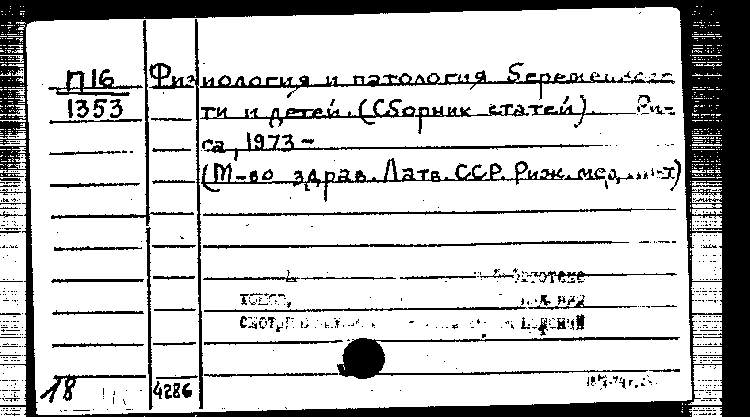 П16
1353
Физиология и патология беременнос
ти и детей. (Сборник статей). Ри-
га, 1973-
(М-во здрав. Латв. ССР. Риж. мед. ин-т)
18
4286